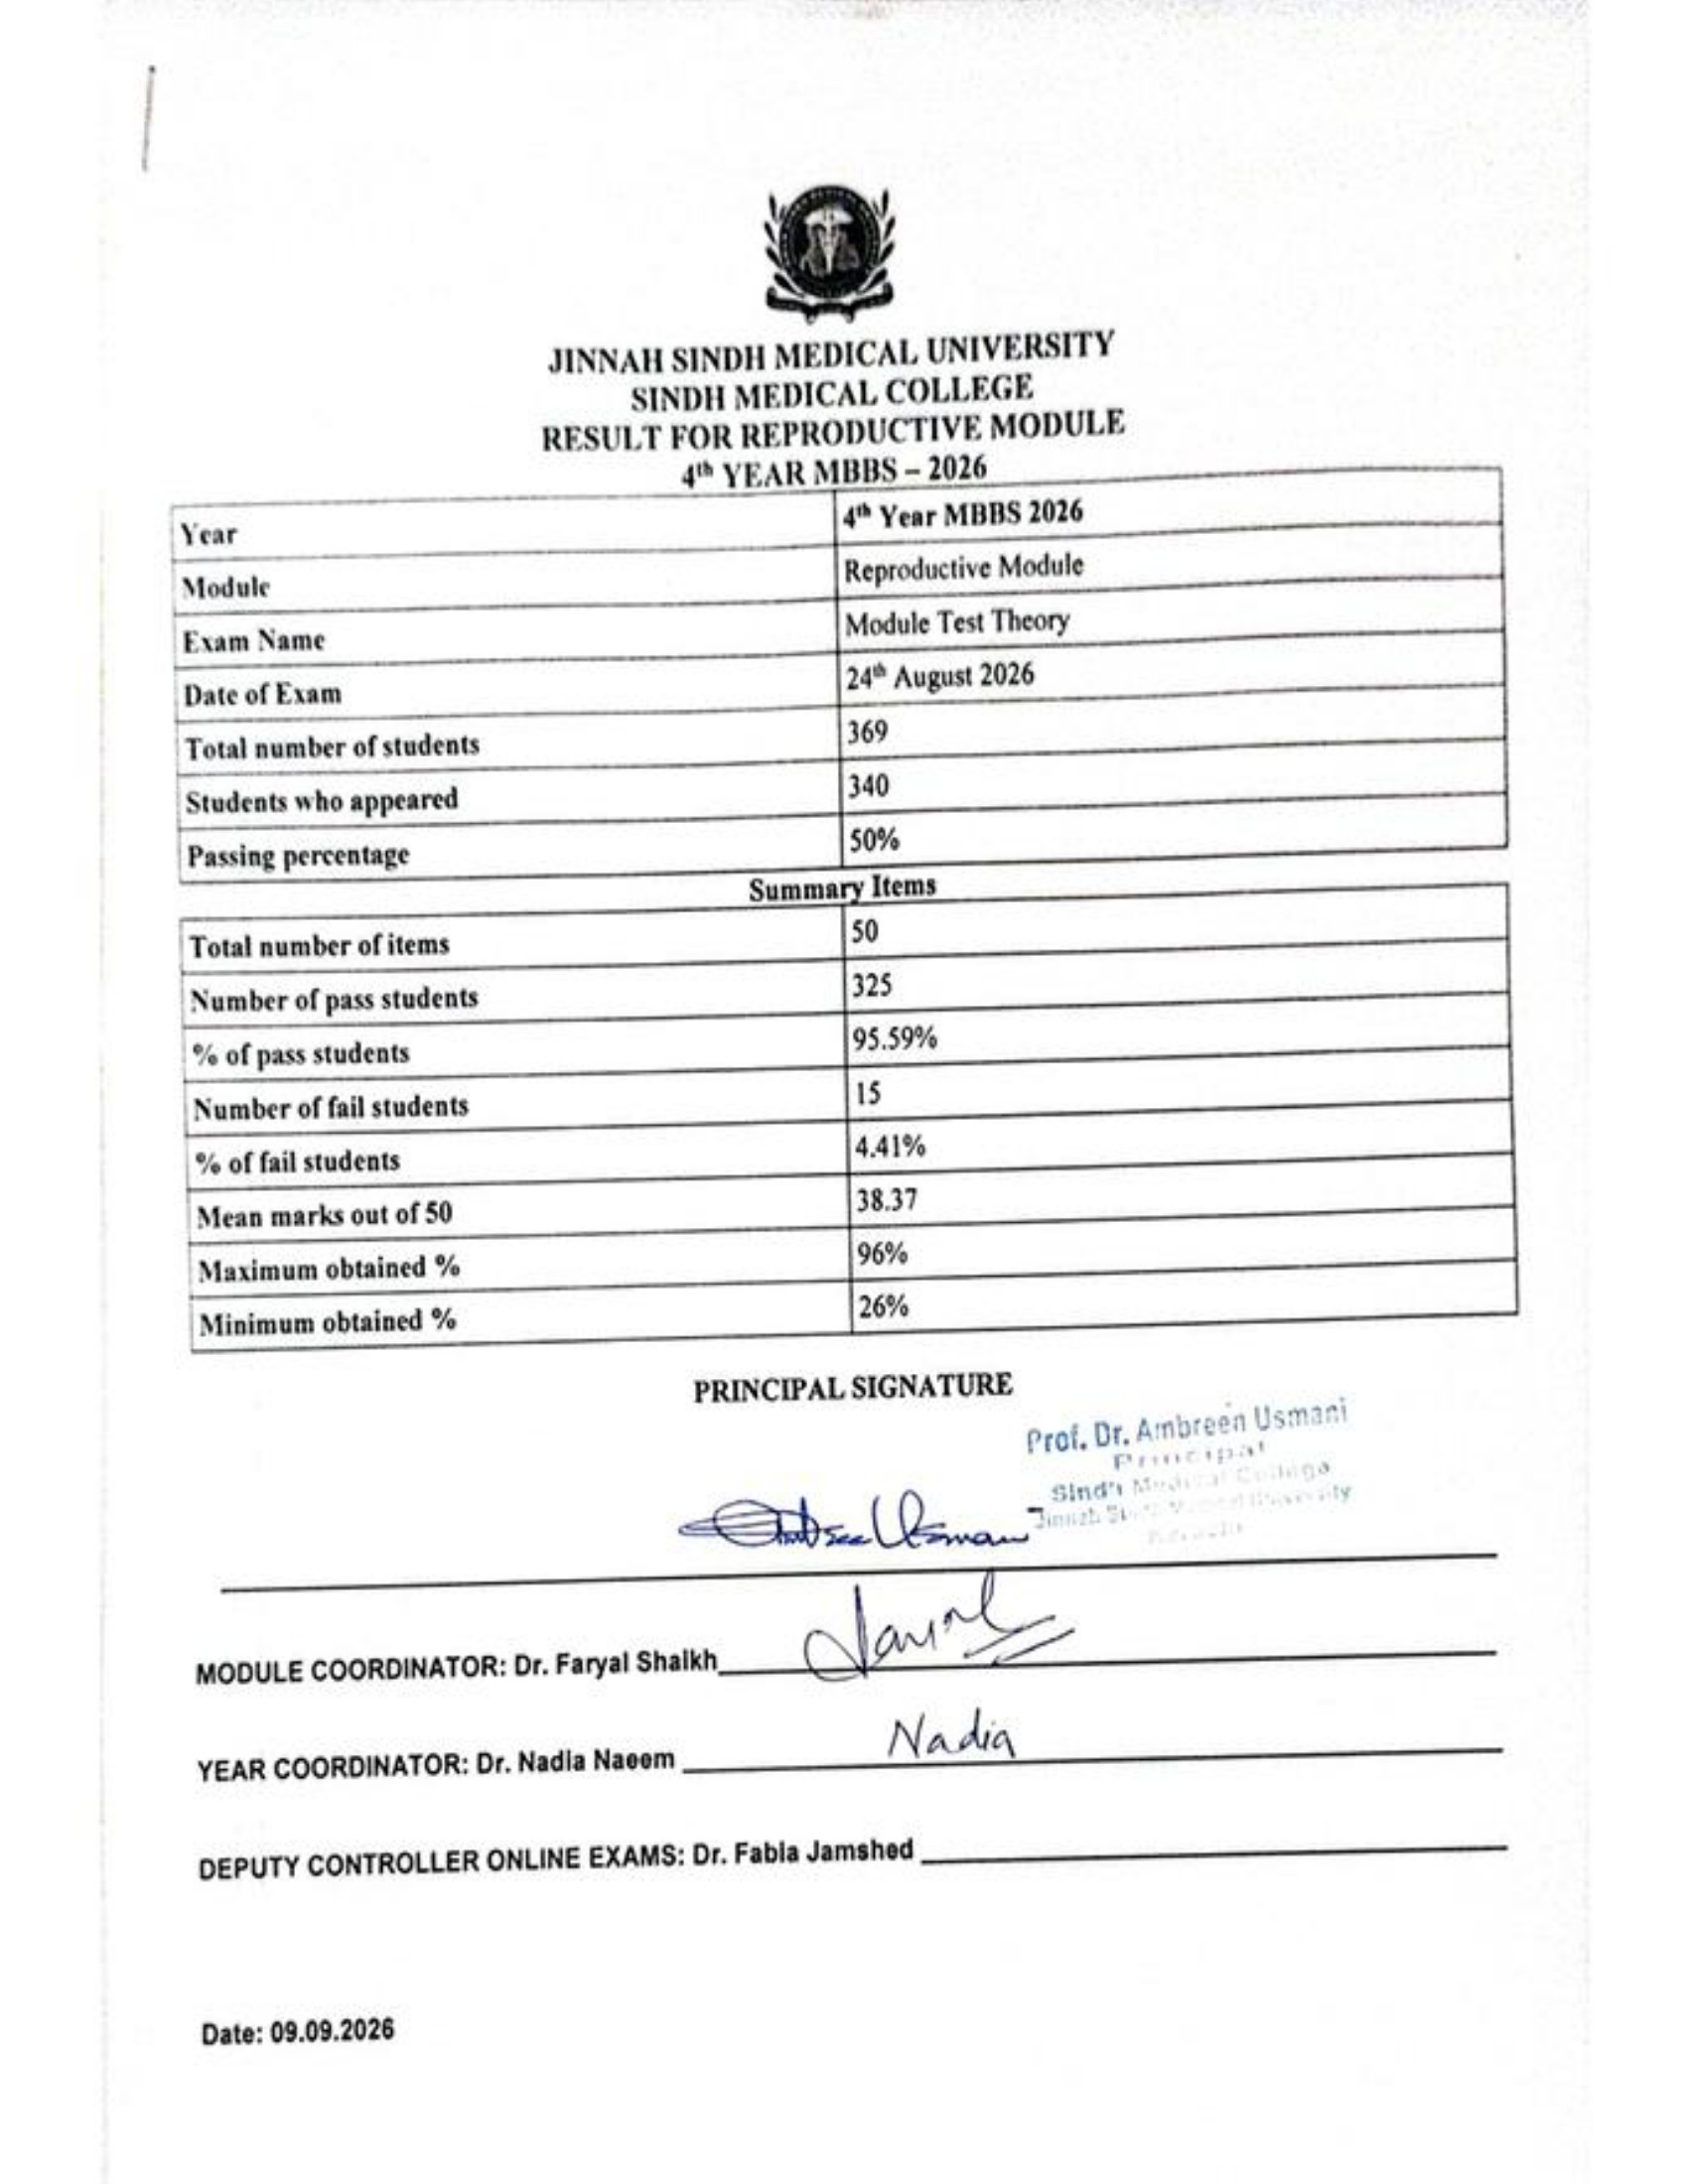 JINNAH SINDH MEDICAL UNIVERSITY
SINDH MEDICAL COLLEGE
RESULT FOR REPRODUCTIVE MODULE
4th YEAR MBBS – 2026
Year 4th Year MBBS 2026
Module Reproductive Module
Exam Name Module Test Theory
Date of Exam 24th August 2026
Total number of students 369
Students who appeared 340
Passing percentage 50%
Summary Items
Total number of items 50
Number of pass students 325
% of pass students 95.59%
Number of fail students 15
% of fail students 4.41%
Mean marks out of 50 38.37
Maximum obtained % 96%
Minimum obtained % 26%
PRINCIPAL SIGNATURE
Prof. Dr. Ambreen Usmani
Principal
Sindh Medical College
Jinnah Sindh Medical University
MODULE COORDINATOR: Dr. Faryal Shaikh
YEAR COORDINATOR: Dr. Nadia Naeem Nadia
DEPUTY CONTROLLER ONLINE EXAMS: Dr. Fabia Jamshed
Date: 09.09.2026